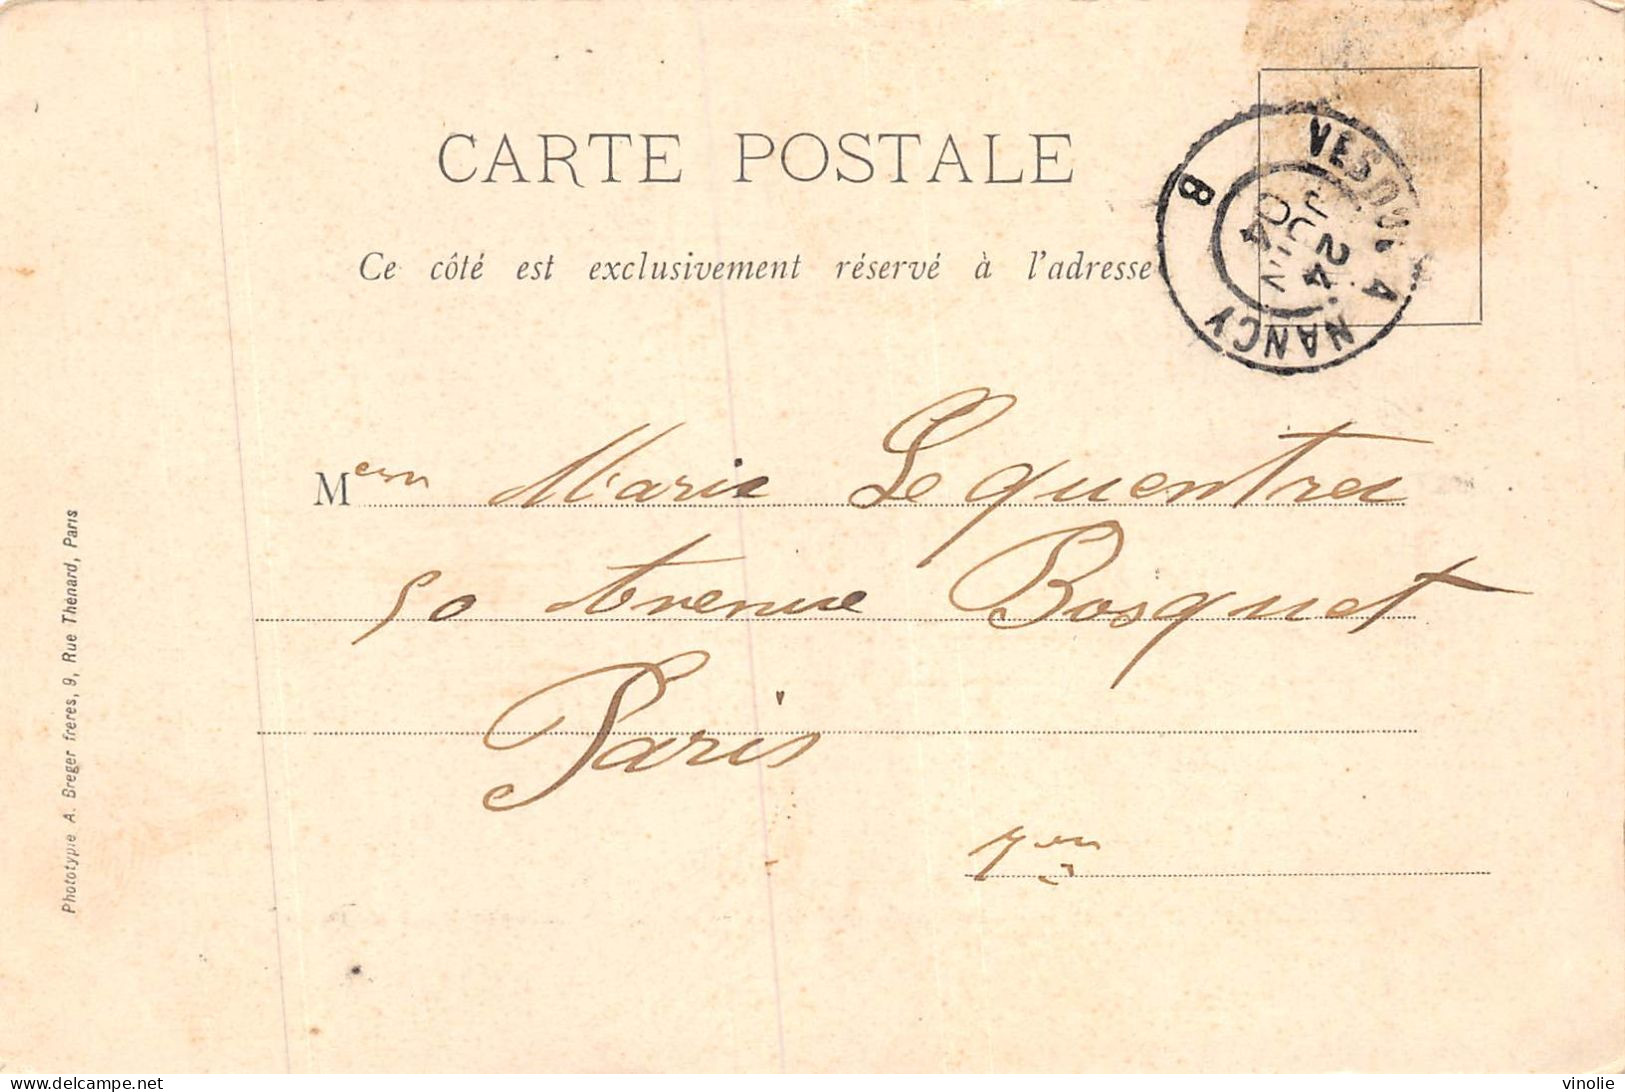 CARTE POSTALE
Ce côté est exclusivement réservé à l'adresse
VESOUL A NANCY B
24 JUIN 04
Mem Marie Lequentrec
50 Avenue Bosquet
Paris
7em
Phototypie A. Breger freres, 9, Rue Thénard, Paris
delcampe.net
vinolie